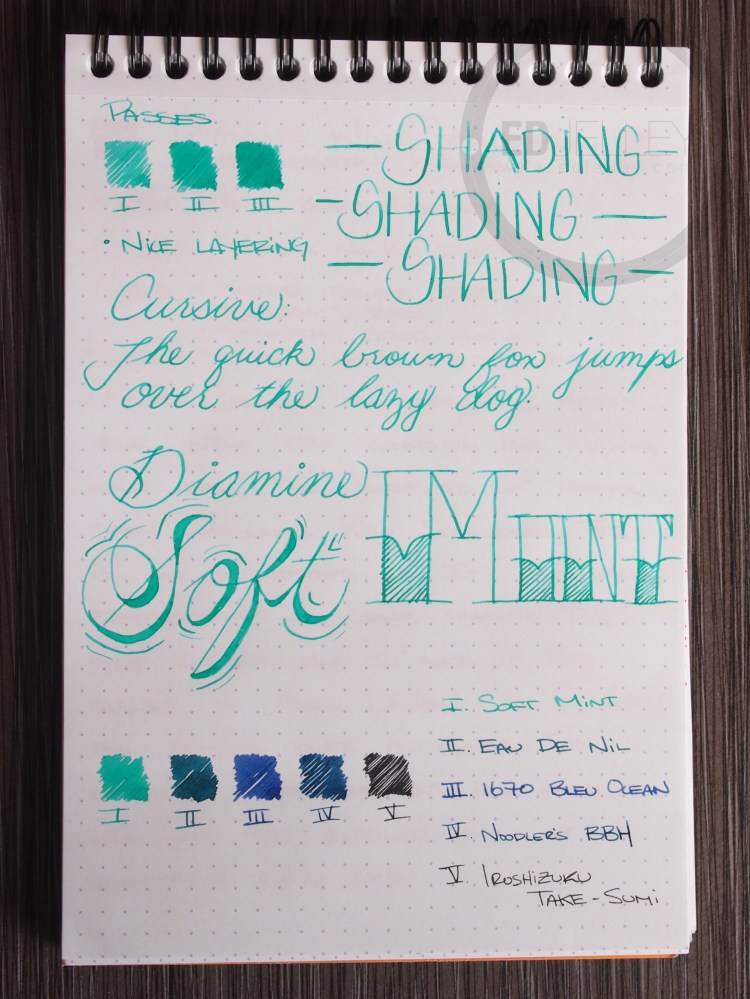 PASSES
I II III
• NICE LAYERING
— SHADING —
— SHADING —
— SHADING —
Cursive:
The quick brown fox jumps
over the lazy dog.
Diamine
Soft MINT
I. SOFT MINT
II. EAU DE NIL
III. 1670 BLEU OCEAN
IV. NOODLER'S BBH
V. IROSHIZUKU
TAKE-SUMI
I II III IV V
ED JELLEY